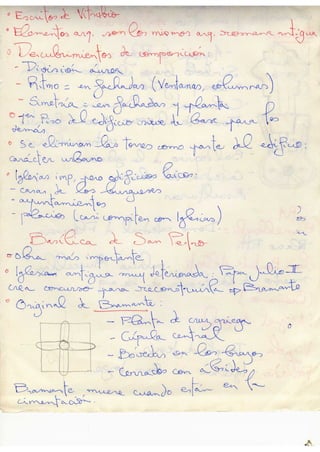 ° Escritos de Vitrubio
° Elementos arq. son los mismos arq. romana antigua
° Descubrimientos de composición:
- División áurea
- Ritmo = en fachadas (Ventanas, columnas)
- Simetría = en fachadas y planta
° 1er Piso del edificio sirve de base para los
demás
° Se eliminan las torres como parte del edificio:
carácter urbano
° Iglesias imp. pero edificios laicos:
- casas de los burgueses
- ayuntamientos
- palacios (casi compiten con Iglesias)
Basílica de San Pedro
° obra más importante
° Iglesia antigua muy deteriorada. Papa Julio II
crea concurso para reconstruirla Bramante
° Original de Bramante:
- Planta de cruz griega
- Cúpula central
- Bóvedas en los brazos
- Cerrados con ábsides
Bramante muere cuando están en la
cimentación.